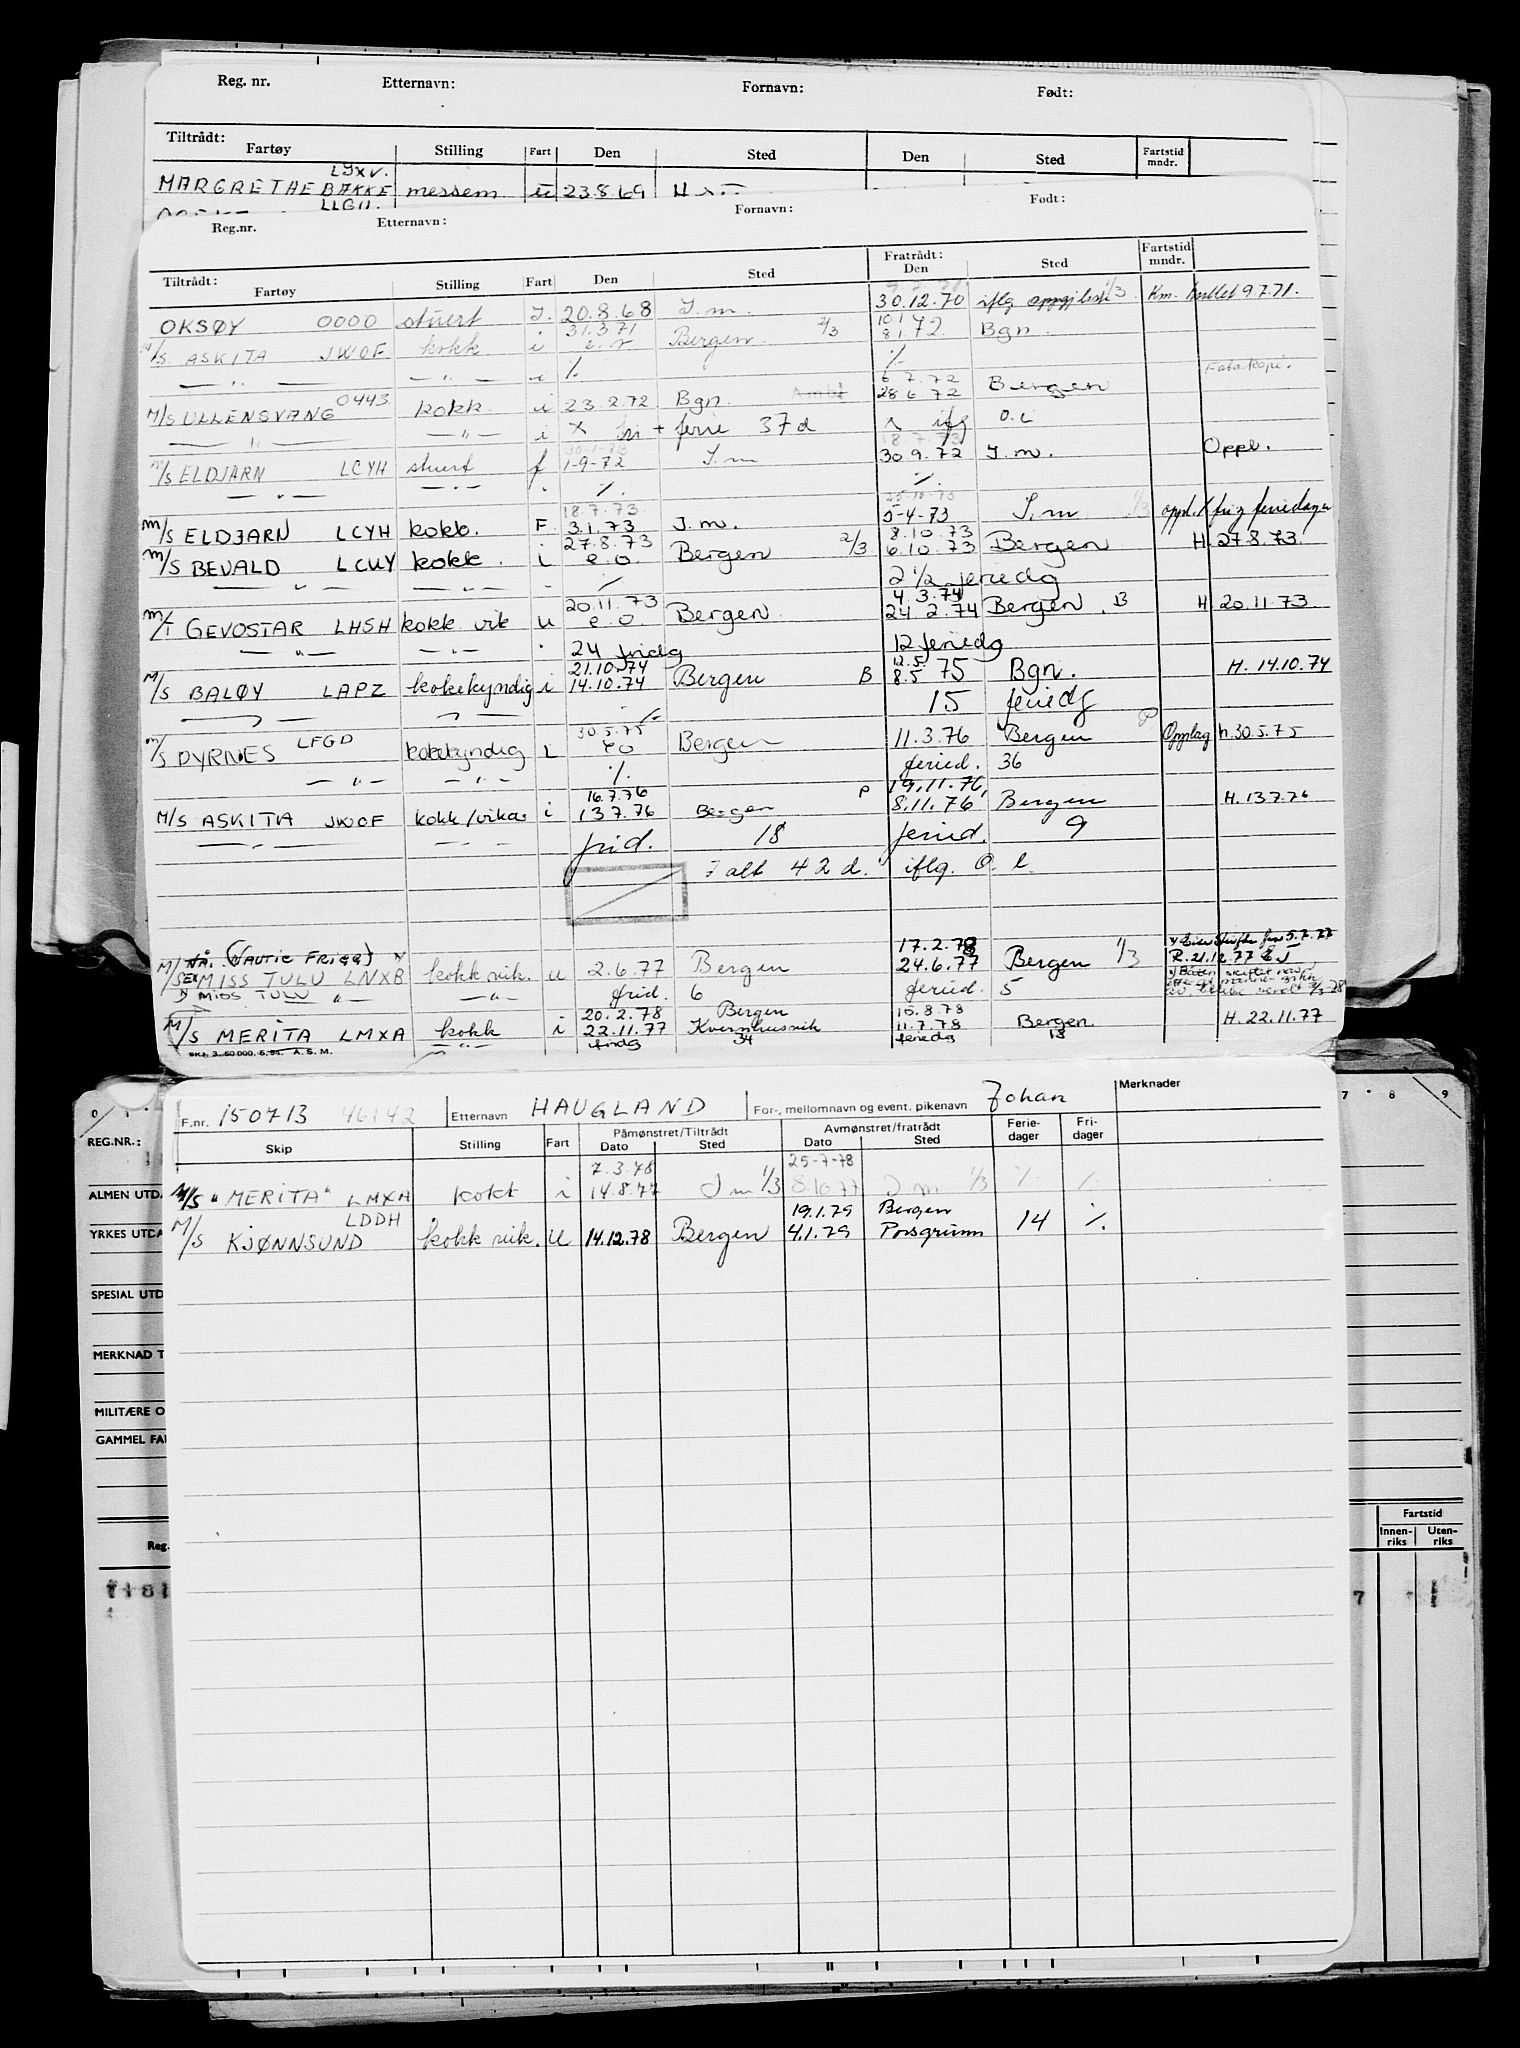 Reg. nr. Etternavn: Fornavn: Født:
Tiltrådt:
Fartøy Stilling Fart Den Sted Den Sted Fartstid mndr.
LJXV.
MARGRETHE BAKKE messem u 23.8.69
Reg.nr. Etternavn: Fornavn: Født:
Tiltrådt: Fratrådt:
Fartøy Stilling Fart Den Sted Den Sted Fartstid mndr.
OKSØY 0000 stuert J. 20.8.68 J.m. 30.12.70 iflg 1/3 Km. 9.7.71.
31.3.71 10.1
M/S. ASKITA JWOF kokk i e.o Bergen. 2/3 8.1.72 Bgn.
— " — — " — i % %
6.7.72 Fotokopi.
M/S ULLENSVANG 0443 kokk. i 23.2.72 Bgn. 28.6.72 Bergen
— " — — " — i X fri + ferie 37d X iflg O.L
18.7.73
M/S ELDJARN LCYH stuert f 1-9-72 J.m 30.9.72 J.m. Oppl.
— " — — " — %. %.
18.7.73 25.10.73
M/S ELDJARN LCYH kokk. F. 3.1.73 J.m. 5-4-73 J.m 1/3 oppl. X fri z feriedager
27.8.73 8.10.73
M/S BEVALD LCUY kokk. i e.o. Bergen 2/3 6.10.73 Bergen H. 27.8.73.
— " — — " — % 2 1/2 feriedg
20.11.73 4.3.74
M/T GEVOSTAR LHSH kokk. vik u e.o. Bergen. 24.2.74 Bergen. B H 20.11.73.
— " — — " — 24 fridg 12 feriedg
21.10.74 12.5
M/S BALØY LAPZ kokkekyndig i 14.10.74 Bergen B 8.5 75 Bgn. H. 14.10.74
— " — — " — % 15 feriedg
30.5.75
M/S DYRNES LFGD kokkekyndig i eo Bergen 11.3.76 Bergen P Opplag h.30.5.75
— " — — " — %. feried. 36
16.7.76 19.11.76,
M/S ASKITA JWOF kokk/vikar i 13.7.76 Bergen P 8.11.76 Bergen H. 13.7.76
— " — — " — frid. 18 feried. 9
I alt 42 d. iflg. O. L.
NÅ. (NAUTIC FRIGG) 17.2.78
M/S EX MISS TULU LNXB kokk vik. u 2.6.77 Bergen 24.6.77 Bergen 1/3 R. 21.12.77
x) MISS TULU " — " — frid. 6 feried. 5
20.2.78 Bergen 15.8.78
M/S MERITA LMXA kokk i 22.11.77 Kvernhusvik 11.7.78 Bergen H. 22.11.77
— " — fridg 34 feriedg 13
SKJ. 3. 50 000. 5. 54. A.S.M.
F.nr. 150713 46142 Etternavn HAUGLAND For-, mellomnavn og event. pikenavn Johan Merknader
Skip Stilling Fart Påmønstret/Tiltrådt Dato Sted Avmønstret/fratrådt Dato Sted Ferie-dager Fri-dager
7.3.78 25-7-78
M/S "MERITA" LMXA kokk i 14.8.77 J m 1/3 8.10.77 J m 1/3 % %
LDDH 19.1.79 Bergen
M/S KJØNNSUND kokk vik. u 14.12.78 Bergen 4.1.79 Porsgrunn 14 %
0 1 7 8 9
REG.NR.:
ALMEN UTDA
YRKES UTDA
SPESIAL UTD
MERKNAD T
MILITÆRE O
GAMMEL FA
Reg.
Fartstid
Innen-riks Uten-riks